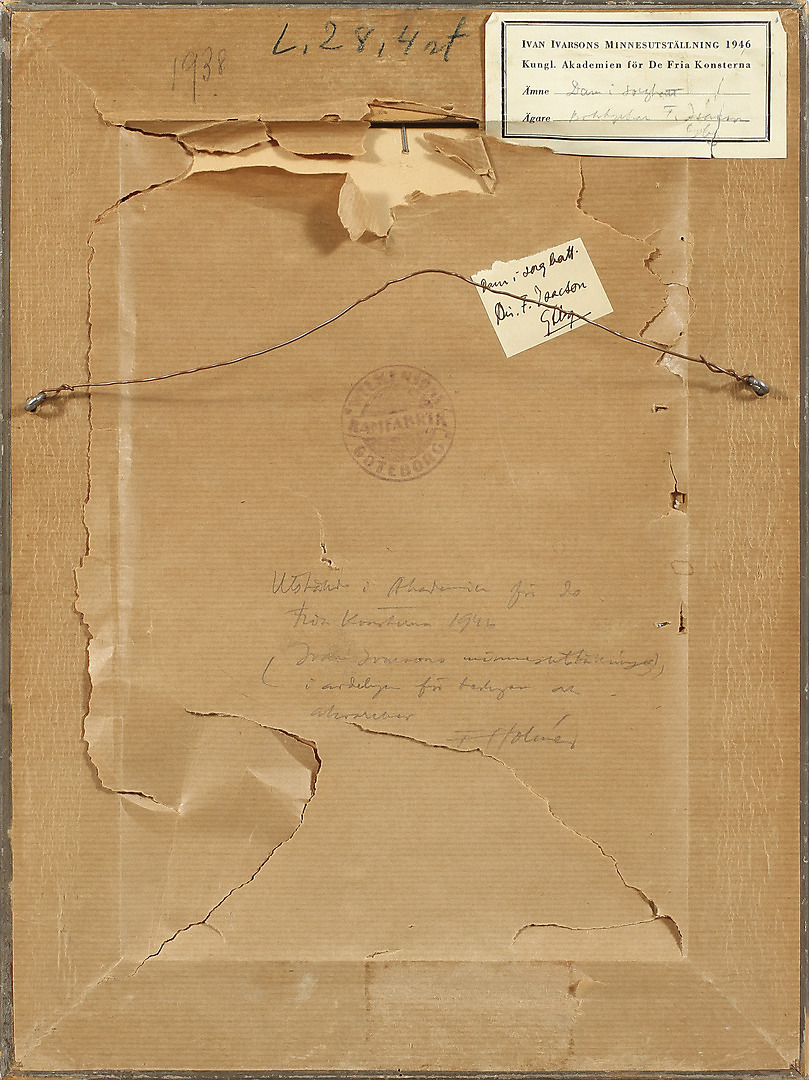 1938
L, 28, 4 st
IVAN IVARSONS MINNESUTSTÄLLNING 1946
Kungl. Akademien för De Fria Konsterna
Ämne Dam i sorghatt
Ägare F. Isacson
Gbg
Dam i sorghatt.
Dir. F. Isacson
Gbg
RAMFABRIK
GÖTEBORG
Utställd i Akademien för de
fria Konsterna 1946
(Ivan Ivarsons minnesutställning),
i avdelningen för teckningar och
akvareller
F Holmér